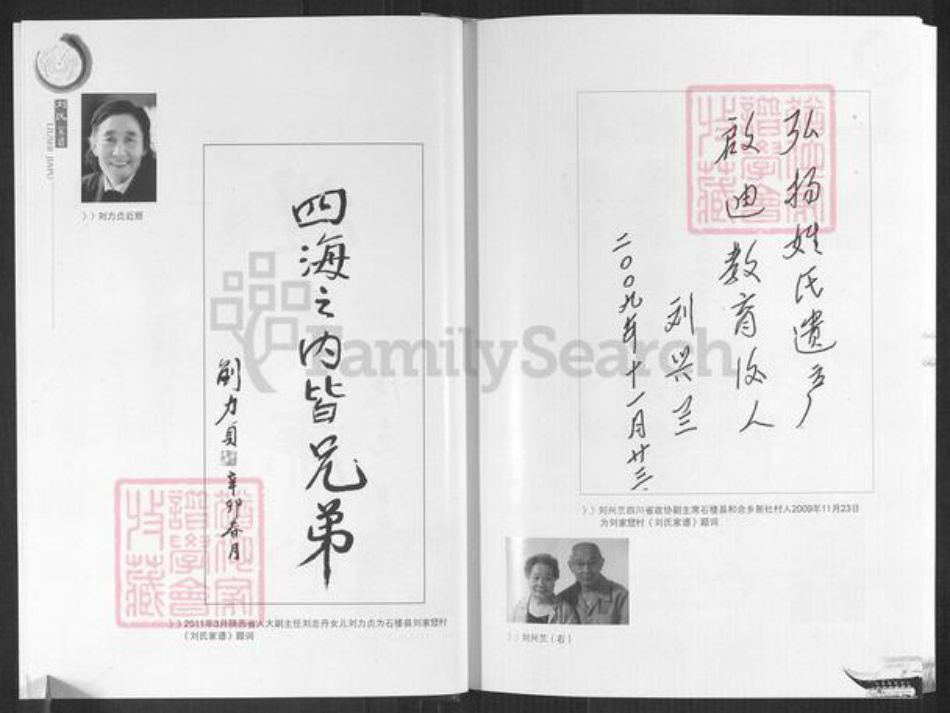 刘氏家谱
LIUSHI JIAPU
》》刘力贞近照
四海之内皆兄弟
刘力贞
辛卯春月
》》2011年3月陕西省人大副主任刘志丹女儿刘力贞为石楼县刘家垤村
《刘氏家谱》题词
弘扬姓氏遗产
启迪教育后人
刘兴兰
二〇〇九年十一月廿三
》》刘兴兰四川省政协副主席石楼县和合乡新社村人2009年11月23日
为刘家垤村《刘氏家谱》题词
》》刘兴兰（右）
FamilySearch
谱学会
收藏